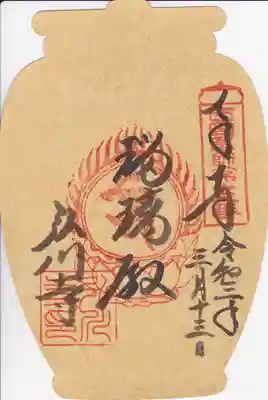 奉拝
令和二年
三月十三日
瑠璃殿
弘川寺